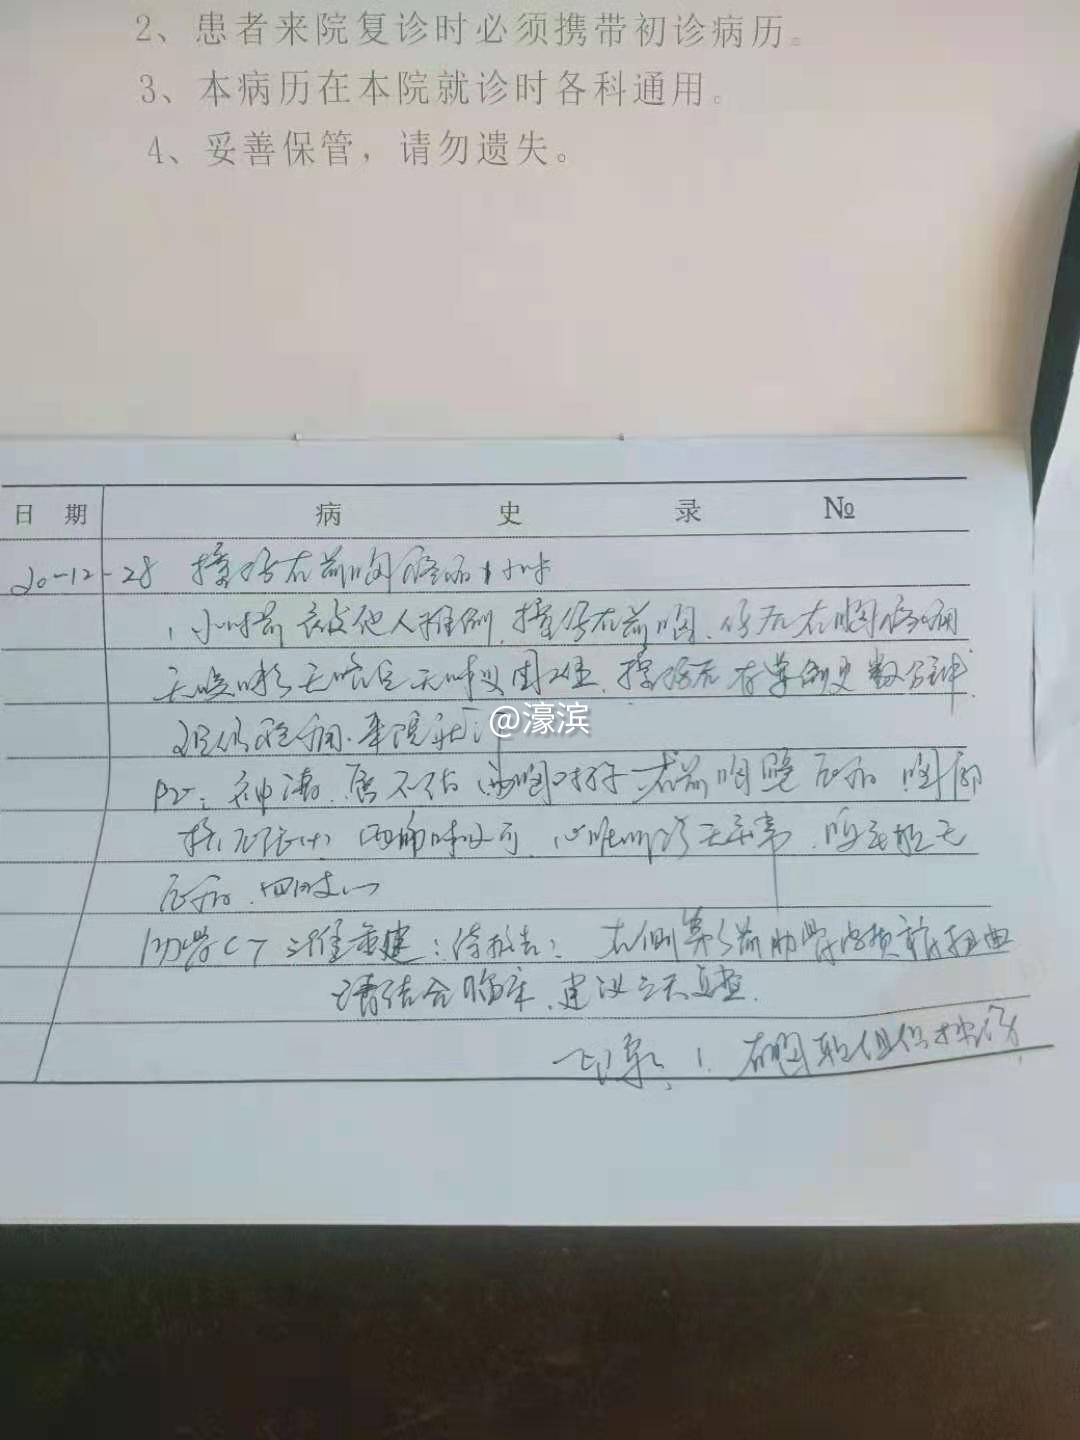 2、患者来院复诊时必须携带初诊病历。
3、本病历在本院就诊时各科通用。
4、妥善保管，请勿遗失。
日 期 病 史 录 №
20-12-28 撞伤右前胸疼痛1小时
1小时前被他人推倒，撞伤右前胸，伤后右胸疼痛
无咳嗽无咯血无呼吸困难，撞伤后有晕倒史数分钟
现仍疼痛，来院就诊
@濠滨
PE：神清，唇不绀，右前胸壁压痛，胸廓
挤压征(+)，两肺呼吸可，心听诊无异常，腹无
压痛，四肢(-)
肋骨CT三维重建：待报告：右侧第5前肋骨皮质前扭曲
请结合临床，建议三天复查。
印象：1. 右胸软组织挫伤